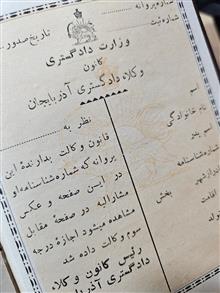 شماره پروانه
شماره ثبت
تاریخ صدور
وزارت دادگستری
کانون
وکلاء دادگستری آذربایجان
نظر به
قانون وکالت بدارنده این
پروانه که شماره شناسنامه او
در این صفحه و عکس
مشارالیه در صفحه مقابل
مشاهده میشود اجازه درجه
سوم وکالت داده شد
رئیس کانون وکلاء
دادگستری آذربا
اسم
نام خانوادگی
اسم پد
شماره شناسنامه
بخش
اقامت